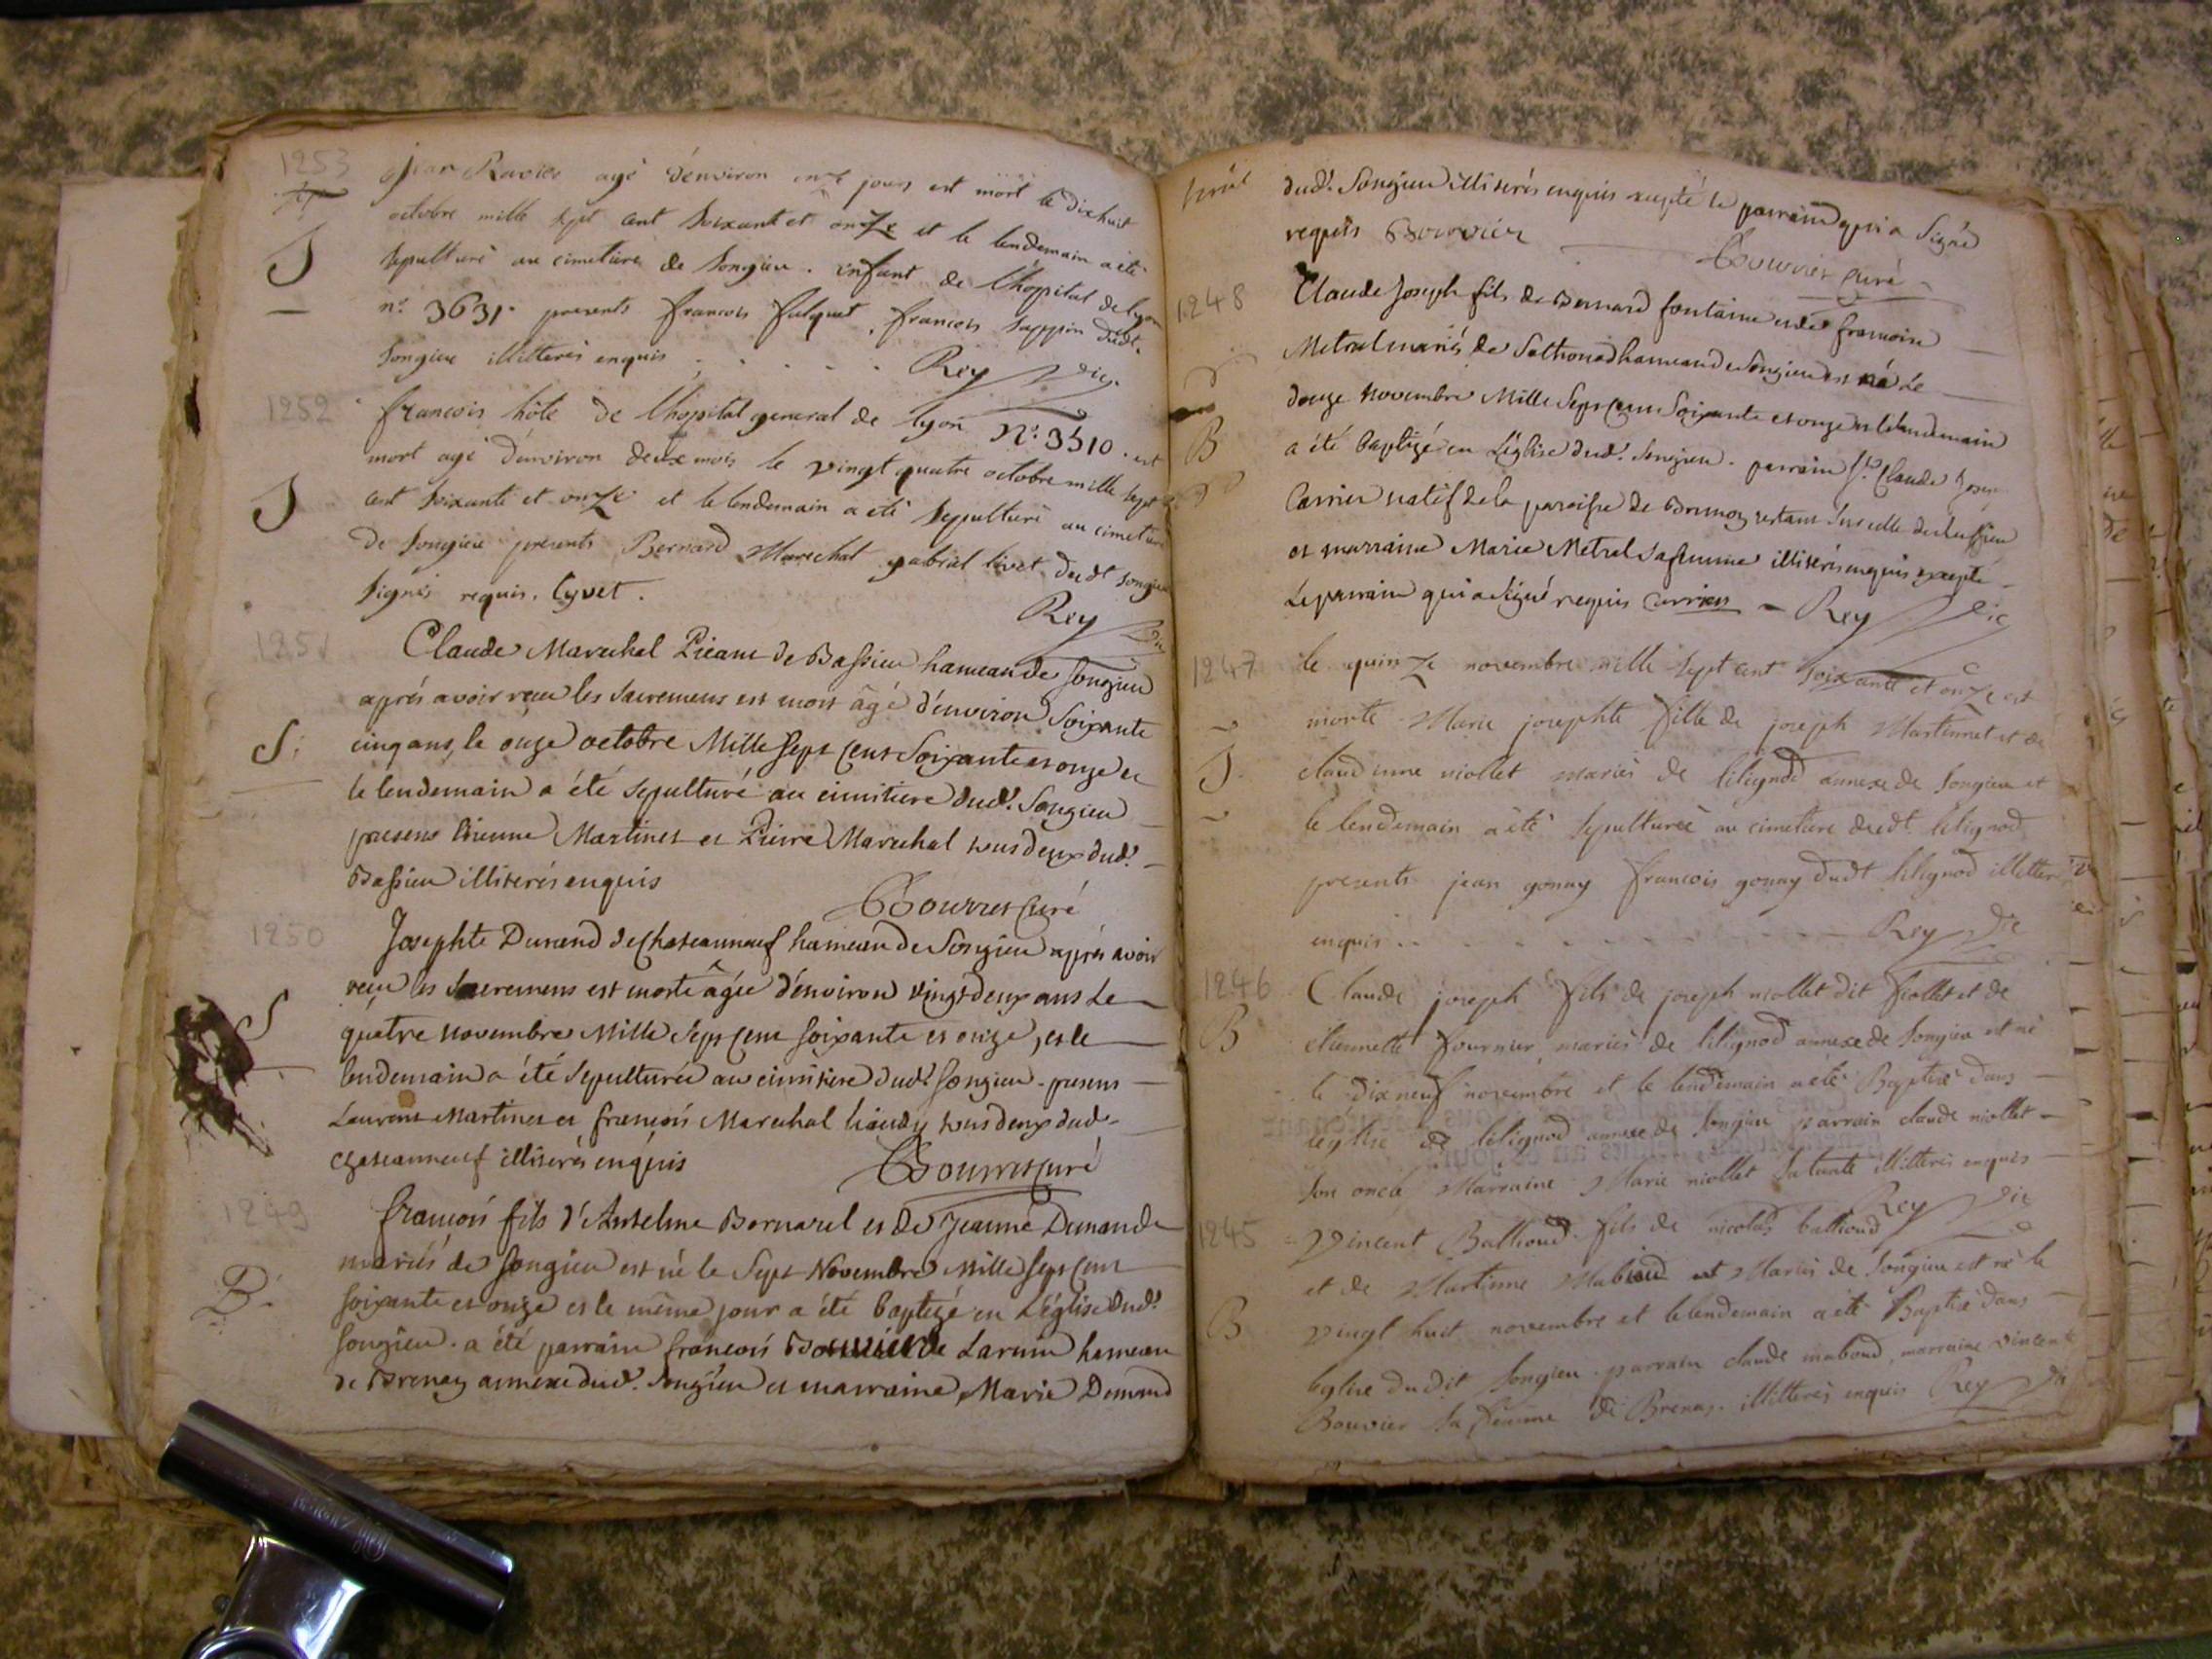 1253
Jean Ravier agé d'environ onze jours est mort le dix huit
octobre mille sept cent soixante et onze et le lendemain a eté
S
sepulturé au cimetiere de Songieu. enfant de l'hopital de lyon
n.° 3631. presents francois fulquet, francois Sappin dudt.
Songieu illitterés enquis . . . . . Rey Vic.
1252
francois hôte de l'hopital general de lyon N.° 3310. est
mort agé d'environ deux mois le vingt quatre octobre mille sept
S
cent soixante et onze et le lendemain a eté sepulturé au cimetiere
de Songieu presents Bernard Marechal gabriel livet dudt songieu
signés requis. Lyvet.
Rey Vic
1251
Claude Marechal Picant de Bassieu hameau de Songieu
aprés avoir receu les sacremens est mort âgé d'environ soixante
S
cinq ans, le onze octobre Mille Sept Cent Soixante et onze et
le lendemain a été sepulturé au cimitiere dud.t Songieu
presens Etienne Martinet et Pierre Marechal tous deux dud.t
Bassieu illiterés enquis
Bouvier Curé
1250
Josephte Durand de Chateauneuf hameau de Songieu aprés avoir
receu les sacremens est morte âgée d'environ vingt deux ans Le
S
quatre Novembre Mille Sept Cent soixante et onze, et le
lendemain a été sepulturée au cimitiere dud.t Songieu. presens
Laurent Martinet et francois Marechal tous deux dud.
Chateauneuf illiterés enquis
Bouvier Curé
1249
francois fils d'Anselme Bornarel et de Jeanne Dunand
mariés de Songieu est né le Sept Novembre Mille Sept Cent
B.
soixante et onze et le même jour a été baptizé en L'église dud.t
Songieu. a été parrain francois Bouvier de Larum hameau
de Brenaz annexe dud.t Songieu et marraine Marie Dunand
dud.t Songieu illiterés enquis excepté le parrain qui a signé
requis Bouvier
Bouvier curé
1248
Claude Joseph fils de Bernard fontaine et de francoise
Metral mariés de Sothonod hameau de Songieu est né le
douze novembre Mille Sept Cent Soixante et onze et le lendemain
B
a été baptizé en L'église dud.t Songieu. parrain S.r Claude Joseph
Carrier natif de la paroisse de restant sur celle de Lussieu
et marraine Marie Metral sa femme illiterés enquis excepté
Le parrain qui a signé requis Carrier - Rey Vic
1247
le quinze novembre mille sept cent soixante et onze est
morte Marie josephte fille de joseph Martinnet et de
S
claudinne niollet mariés de lilignod annexe de Songieu et
le lendemain a eté sepulturée au cimetiere dudt. lilignod
presents jean gonay francois gonay dudt lilignod illitterés
enquis . . . . . . Rey Vic
1246
Claude joseph fils de joseph niollet dit fiollet et de
B
etiennette fournier mariés de lilignod annexe de Songieu est né
le dix neuf novembre et le lendemain a eté Baptisé dans
l'eglise de lilignod annexe de Songieu parrain claude niollet
son oncle Marraine Marie niollet sa tante illitterés enquis
Rey Vic
1245
Vincent Ballioud fils de nicolas ballioud
et de Martinne Maboud Mariés de Songieu est né le
B
vingt huit novembre et le lendemain a eté Baptisé dans
leglise dudit Songieu parrain claude maboud, marraine vincente
Bouvier sa femme de Brenas. illitterés enquis Rey Vic